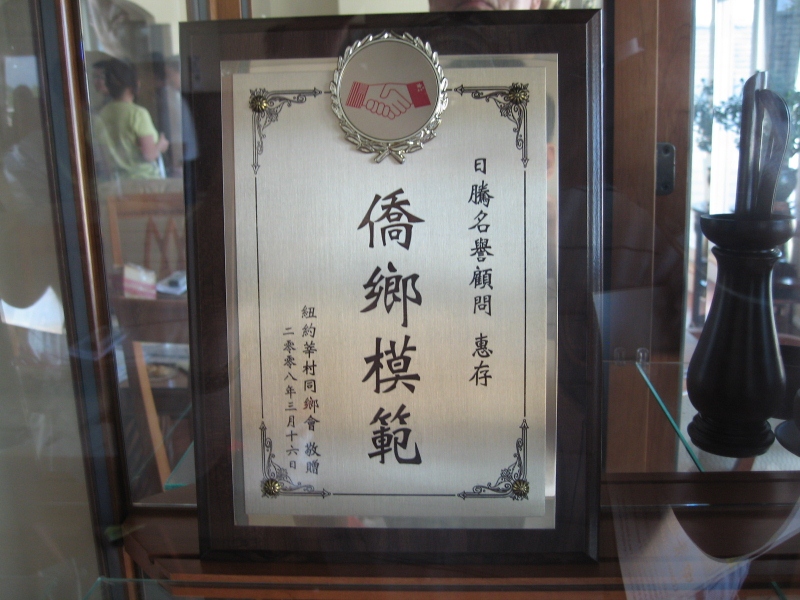 日騰名譽顧問 惠存
僑鄉模範
紐約莘村同鄉會 敬贈
二零零八年三月十六日